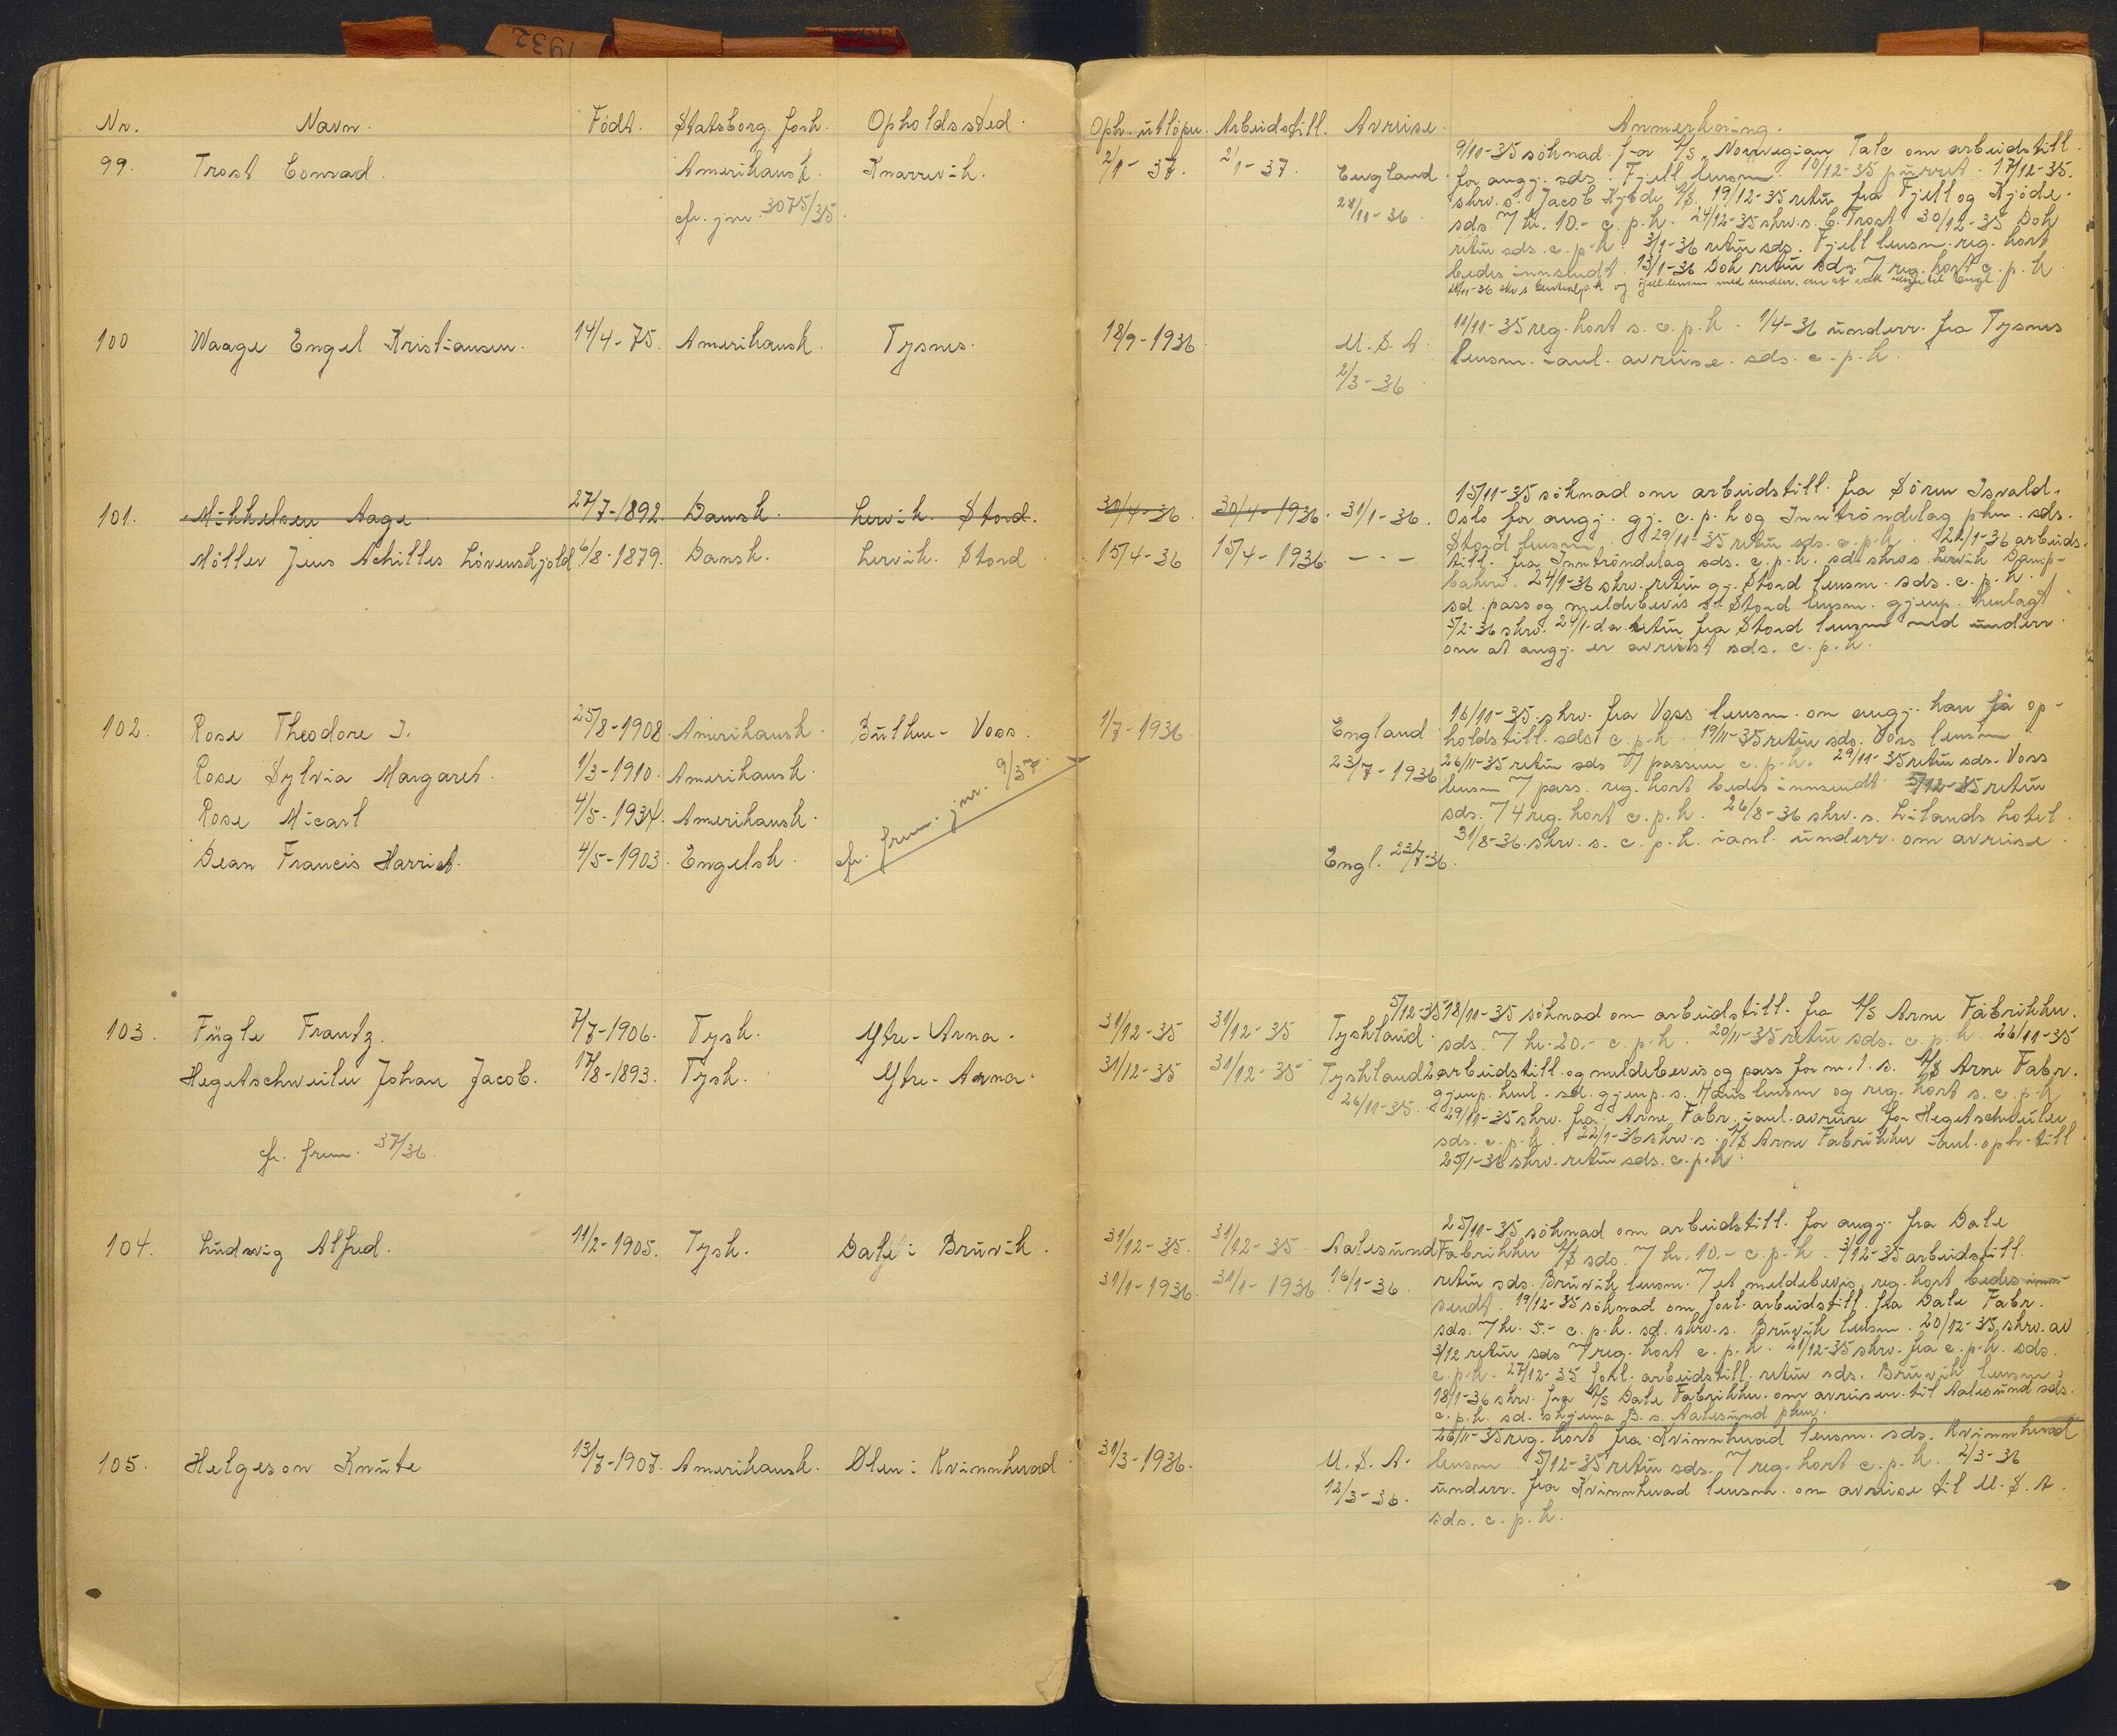 1932
Nr. Navn. Födt. Statsborg. forh. Opholdssted.
99. Trost Conrad. Amerikansk. Knarrevik.
cfr. jnr. 3075/35.
100 Waage Engel Kristiansen. 14/4-75. Amerikansk. Tysnes.
101. Mikkelsen Aage 27/7-1892. Dansk. Lervik. Stord.
Möller Jens Achilles Lövenskjold 6/8-1879. Dansk. Lervik. Stord
102. Rose Theodore I. 25/8-1908. Amerikansk. Bulken - Voss.
Rose Sylvia Margaret. 1/3-1910. Amerikansk.
Rose Micarl 4/5-1934. Amerikansk.
Dean Francis Harriet. 4/5-1903. Engelsk.
cfr. frem. jnr. 9/37.
103. Fügle Frantz. 7/7-1906. Tysk. Ytre-Arna.
Hegetschweiler Johan Jacob. 17/8-1893. Tysk. Ytre-Arna.
cfr. frem. 37/36.
104. Ludwig Alfred. 11/2-1905. Tysk. Dale i Bruvik.
105. Helgeson Knute 13/7-1907. Amerikansk. Ölen i Kvinnherad
Oph. utlöper. Arbeidstill. Avreise. Anmerkning.
2/1-37. 2/1-37. England
28/11-36.
9/11-35 söknad for A/S Norwegian Talc om arbeidstill.
for angj. sds. Fjell lensm. 10/12-35 purret. 17/12-35.
skrv. s. Jacob Kjöde A/S. 19/12-35 retur fra Fjell og Kjöde.
sds. 7 kr. 10.- c.p.k. 24/12-35 skrv. s. C. Trost 30/12-35 Dok
retur sds. c.p.k. 3/1-36 retur sds. Fjell lensm. reg. kort
bedes innsendt. 13/1-36 Dok retur sds. 7 reg. kort c.p.k.
18/9-1936 U.S.A.
2/3-36
11/11-35 reg. kort s. c.p.k. 1/4-36 underr. fra Tysnes
lensm. i anl. avreise. sds. c.p.k.
30/4-36 30/4-1936. 31/1-36.
15/4-36 15/4-1936. - - -
15/11-35 söknad om arbeidstill. fra Sören Isvald.
Oslo for angj. gj. c.p.k og Inntröndelag pkm. sds.
Stord lensm. 29/11-35 retur sds. c.p.k. 22/1-36 arbeids.
till. fra Inntröndelag sds. c.p.k. sd. skrv. s. Lervik Damp-
bakeri. 24/1-36 skrv. retur gj. Stord lensm. sds. c.p.k.
sd. pass og meldebevis s. Stord lensm. gjenp. henlagt
5/2-36 skrv. 24/1. da. retur fra Stord lensm med underr.
om at angj. er avreist sds. c.p.k.
1/7-1936. England
23/7-1936
Engl. 23/7-36.
16/11-35. skrv. fra Voss lensm. om angj. kan få op-
holdstill. sds. c.p.k. 19/11-35 retur sds. Voss lensm
26/11-35 retur sds 7 passene c.p.k. 29/11-35 retur sds. Voss
lensm 7 pass. reg. kort bedes innsendt. 5/12-35 retur
sds. 7 4 reg. kort c.p.k. 26/8-36 skrv. s. Lilands hotel.
31/8-36. skrv. s. c.p.k. i anl. underr. om avreise.
31/12-35 31/12-35 Tyskland. 5/12-35
31/12-35 31/12-35 Tyskland
26/11-35.
18/11-35 söknad om arbeidstill. fra A/S Arne Fabrikker.
sds. 7 kr. 20.- c.p.k. 20/11-35 retur sds. c.p.k. 26/11-35
2 arbeidstill. og meldebevis og pass for nr. 1. s. A/S Arne Fabr.
gjenp. henl. sd. gjenp. s. Haus lensm og reg. kort s. c.p.k
29/11-35 skrv. fra Arne Fabr. i anl. avreise for Hegetschweiler
sds. c.p.k. 22/1-36 skrv. s. A/S Arne Fabrikker i anl. oph. till
25/1-36 skrv. retur sds. c.p.k.
31/12-35. 31/12-35. Aalesund
31/1-1936. 31/1-1936 16/1-36.
25/11-35 söknad om arbeidstill. for angj. fra Dale
Fabrikker A/S sds. 7 kr. 10.- c.p.k. 3/12-35 arbeidstill.
retur sds. Bruvik lensm. 7 et meldebevis, reg. kort bedes inn-
sendt. 19/12-35 söknad om forl. arbeidstill. fra Dale Fabr.
sds. 7 kr. 5.- c.p.k. sd. skrv. s. Bruvik lensm. 20/12-35 skrv. av
3/12 retur sds 7 reg. kort c.p.k. 21/12-35 skrv. fra c.p.k. sds.
c.p.k. 27/12-35 forl. arbeidstill. retur sds. Bruvik lensm.
18/1-36 skrv. fra A/S Dale Fabrikker. om avreisen til Aalesund sds.
c.p.k. sd. skjema B. s. Aalesund pkm.
31/3-1936. U.S.A.
12/3-36.
26/11-35 reg. kort fra Kvinnherad lensm. sds. Kvinnherad
lensm. 5/12-35 retur sds. 7 reg. kort c.p.k. 2/3-36
underr. fra Kvinnherad lensm. om avreise til U.S.A.
sds. c.p.k.